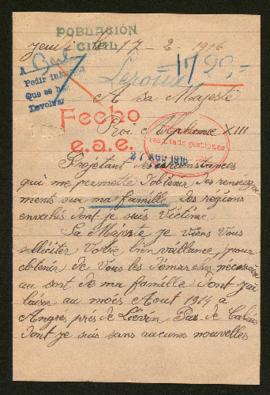 POBLACIÓN
CIVIL
17 - 2 1916
A
Pedir
Que se
Devolver
Leroux
A Sa Majesté
Roi Alphonse XIII
Fecho
e.a.e.
1916
Projetant les circonstances
qui me permette d'obtenir des renseigne
ments sur ma famille des régions
envahies dont je suis victime.
Sa Majesté je viens vous
solliciter votre bienveillance, pour
obtenir de vous les démarches
au sort de ma famille dont j'ai
laissé au mois Aout 1914 à
Angres, près de Liévin Pas de Calais
dont je suis sans aucune nouvelles